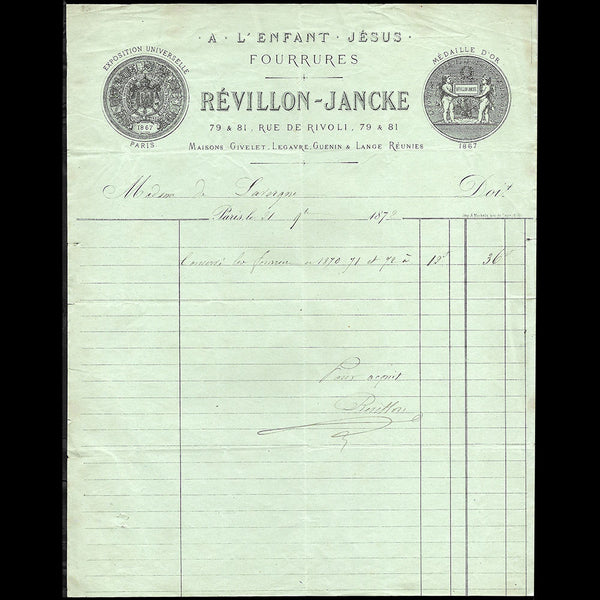 A L'ENFANT JÉSUS
FOURRURES
RÉVILLON-JANCKE
79 & 81, RUE DE RIVOLI, 79 & 81
MAISONS GIVELET, LEGAVRE, GUENIN & LANGE RÉUNIES
EXPOSITION UNIVERSELLE
1867
PARIS
MÉDAILLE D'OR
RÉVILLON JANCKE
1867
Madame de Lavergne Doit
Paris, le 21 1872
Conservé les fourrures en 1870 71 et 72 à 12f 36f
Pour acquit
Révillon